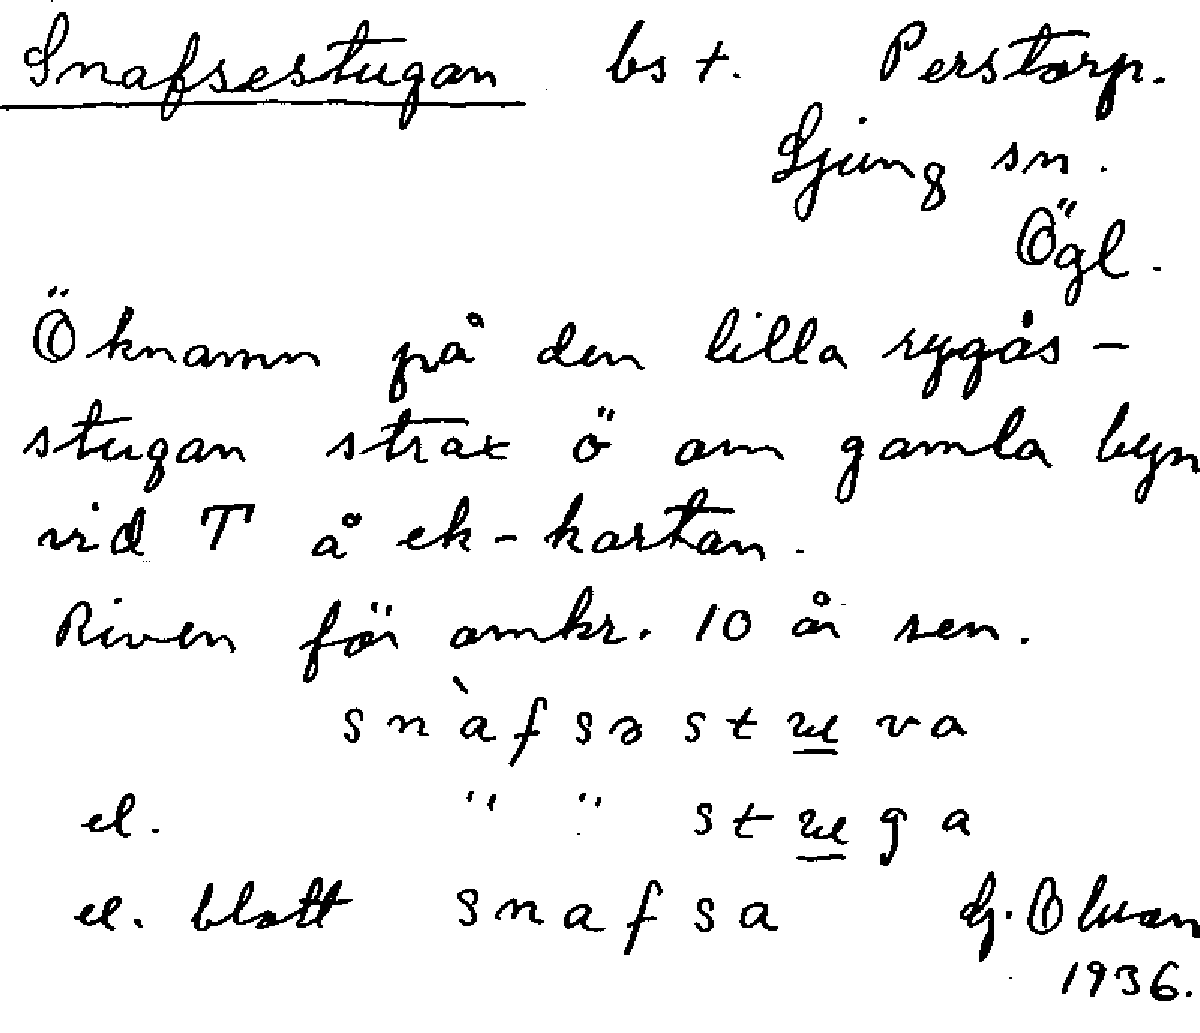 Snafsestugan bst. Perstorp.
Ljung sn.
Ögl.
Öknamn på den lilla rygås-
stugan strax ö om gamla byn
vid T å ek-kartan.
Riven för omkr. 10 år sen.
snàfsə stu̲va
el. " " stu̲ga
el. blott snafsa G. Olson
1936.